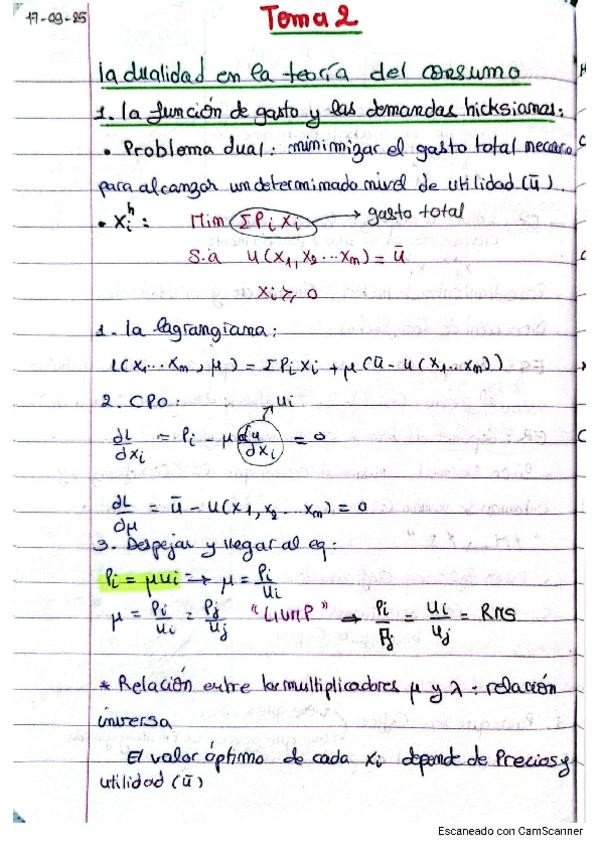 17-09-25
Tema 2
La dualidad en la teoría del consumo
1. La función de gasto y las demandas hicksianas:
• Problema dual: minimizar el gasto total necesario
para alcanzar un determinado nivel de utilidad (ū).
• xᵢʰ: Min ΣPᵢXᵢ → gasto total
S.a U(x₁, x₂ ... xₙ) = ū
xᵢ ≥ 0
1. La lagrangiana:
L(x₁...xₙ, μ) = ΣPᵢXᵢ + μ(ū - U(x₁...xₙ))
2. CPO: → uᵢ
∂L/∂xᵢ = Pᵢ - μ ∂u/∂xᵢ = 0
∂L/∂μ = ū - U(x₁, x₂ ... xₙ) = 0
3. Despejar y llegar al eq:
Pᵢ = μuᵢ → μ = Pᵢ/uᵢ
μ = Pᵢ/uᵢ = Pⱼ/uⱼ "LIUMP" → Pᵢ/Pⱼ = uᵢ/uⱼ = RMS
* Relación entre los multiplicadores μ y λ: relación
inversa
El valor óptimo de cada xᵢ depende de Precios y
utilidad (ū)
Escaneado con CamScanner